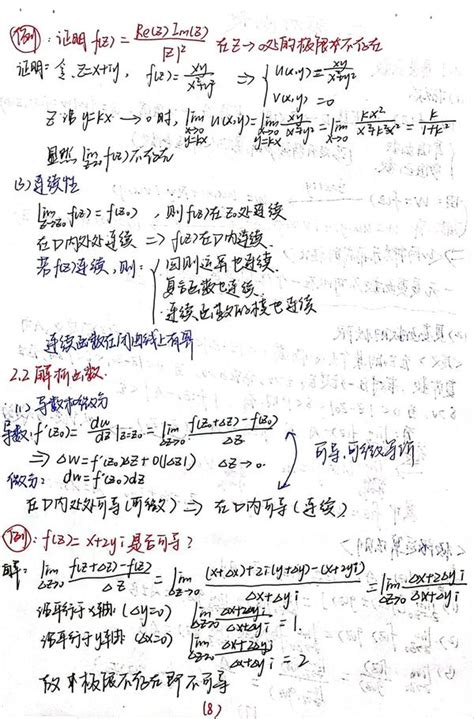 例: 证明 f(z) = Re(z)Im(z) / |z|² 在 z→0 处的极限不存在
证明: 令 z=x+iy, f(z) = xy/(x²+y²) ⇒ { u(x,y) = xy/(x²+y²)
v(x,y) = 0
z 沿 y=kx → 0 时, lim_{x→0, y=kx} u(x,y) = lim_{x→0, y=kx} xy/(x²+y²) = lim_{x→0} kx²/(x²+k²x²) = k/(1+k²)
显然 lim_{z→0} f(z) 不存在
(3) 连续性
lim_{z→z₀} f(z) = f(z₀), 则 f(z) 在 z₀ 处连续
在D内处处连续 ⇒ f(z) 在D内连续
若 f(z) 连续, 则: { 四则运算也连续
复合函数也连续
连续函数的模也连续
连续函数在闭曲线上有界
2.2 解析函数
(1) 导数和微分
导数: f'(z₀) = dw/dz |z=z₀ = lim_{Δz→0} (f(z₀+Δz) - f(z₀))/Δz
⇒ Δw = f'(z₀)Δz + o(|Δz|) Δz→0
可导、可微等价
微分: dw = f'(z₀)dz
在D内处处可导(可微) ⇒ 在D内可导(连续)
例: f(z) = x+2yi 是否可导?
解: lim_{Δz→0} (f(z+Δz) - f(z))/Δz = lim_{Δz→0} ((x+Δx)+2i(y+Δy) - (x+2yi))/(Δx+Δyi) = lim_{Δz→0} (Δx+2Δyi)/(Δx+Δyi)
沿平行于x轴 (Δy=0) lim_{Δz→0} (Δx+2Δyi)/(Δx+Δyi) = 1
沿平行于y轴 (Δx=0) lim_{Δz→0} (Δx+2Δyi)/(Δx+Δyi) = 2
故 极限不存在即不可导
(8)